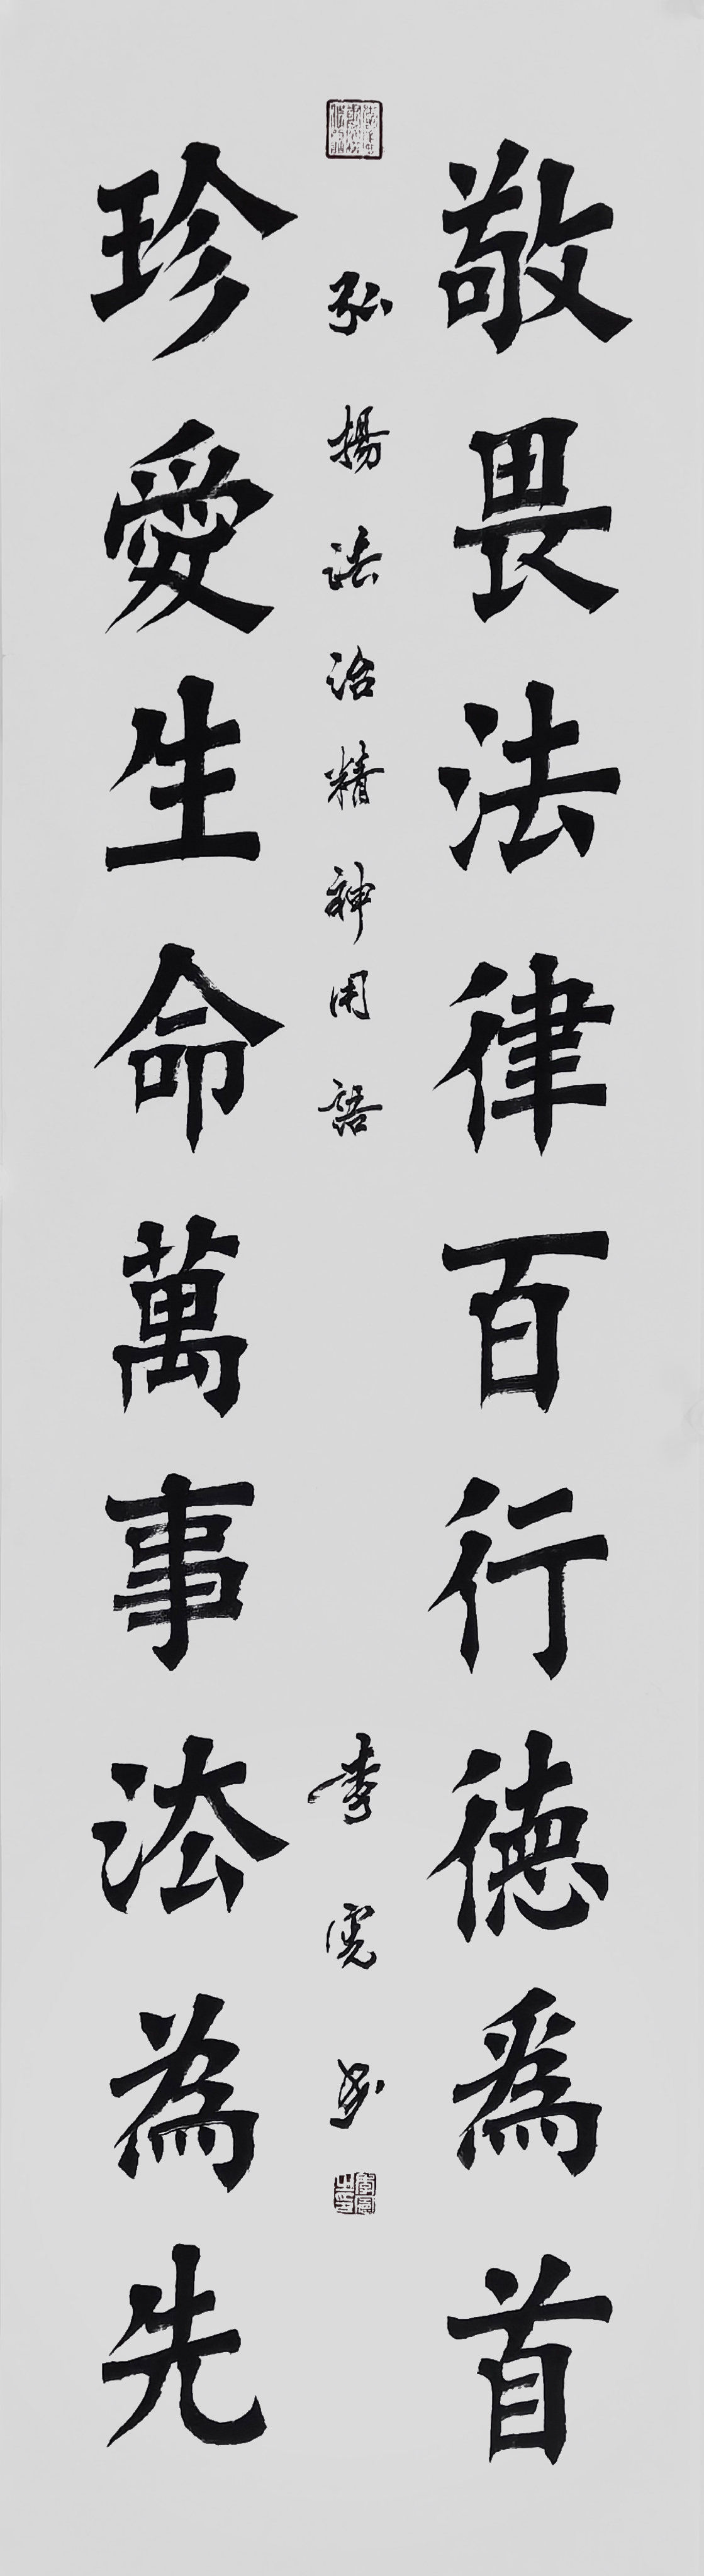 敬畏法律百行德爲首
弘揚法治精神用語
李寬書
珍愛生命萬事法為先